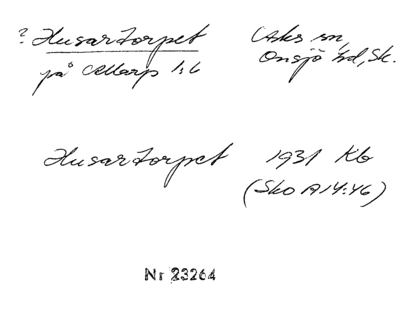 ? Husartorpet Asks sn,
på Allarp 1:6 Onsjö hd, Sk.
Husartorpet 1931 Kb
(Sko A 14:46)
Nr 23264